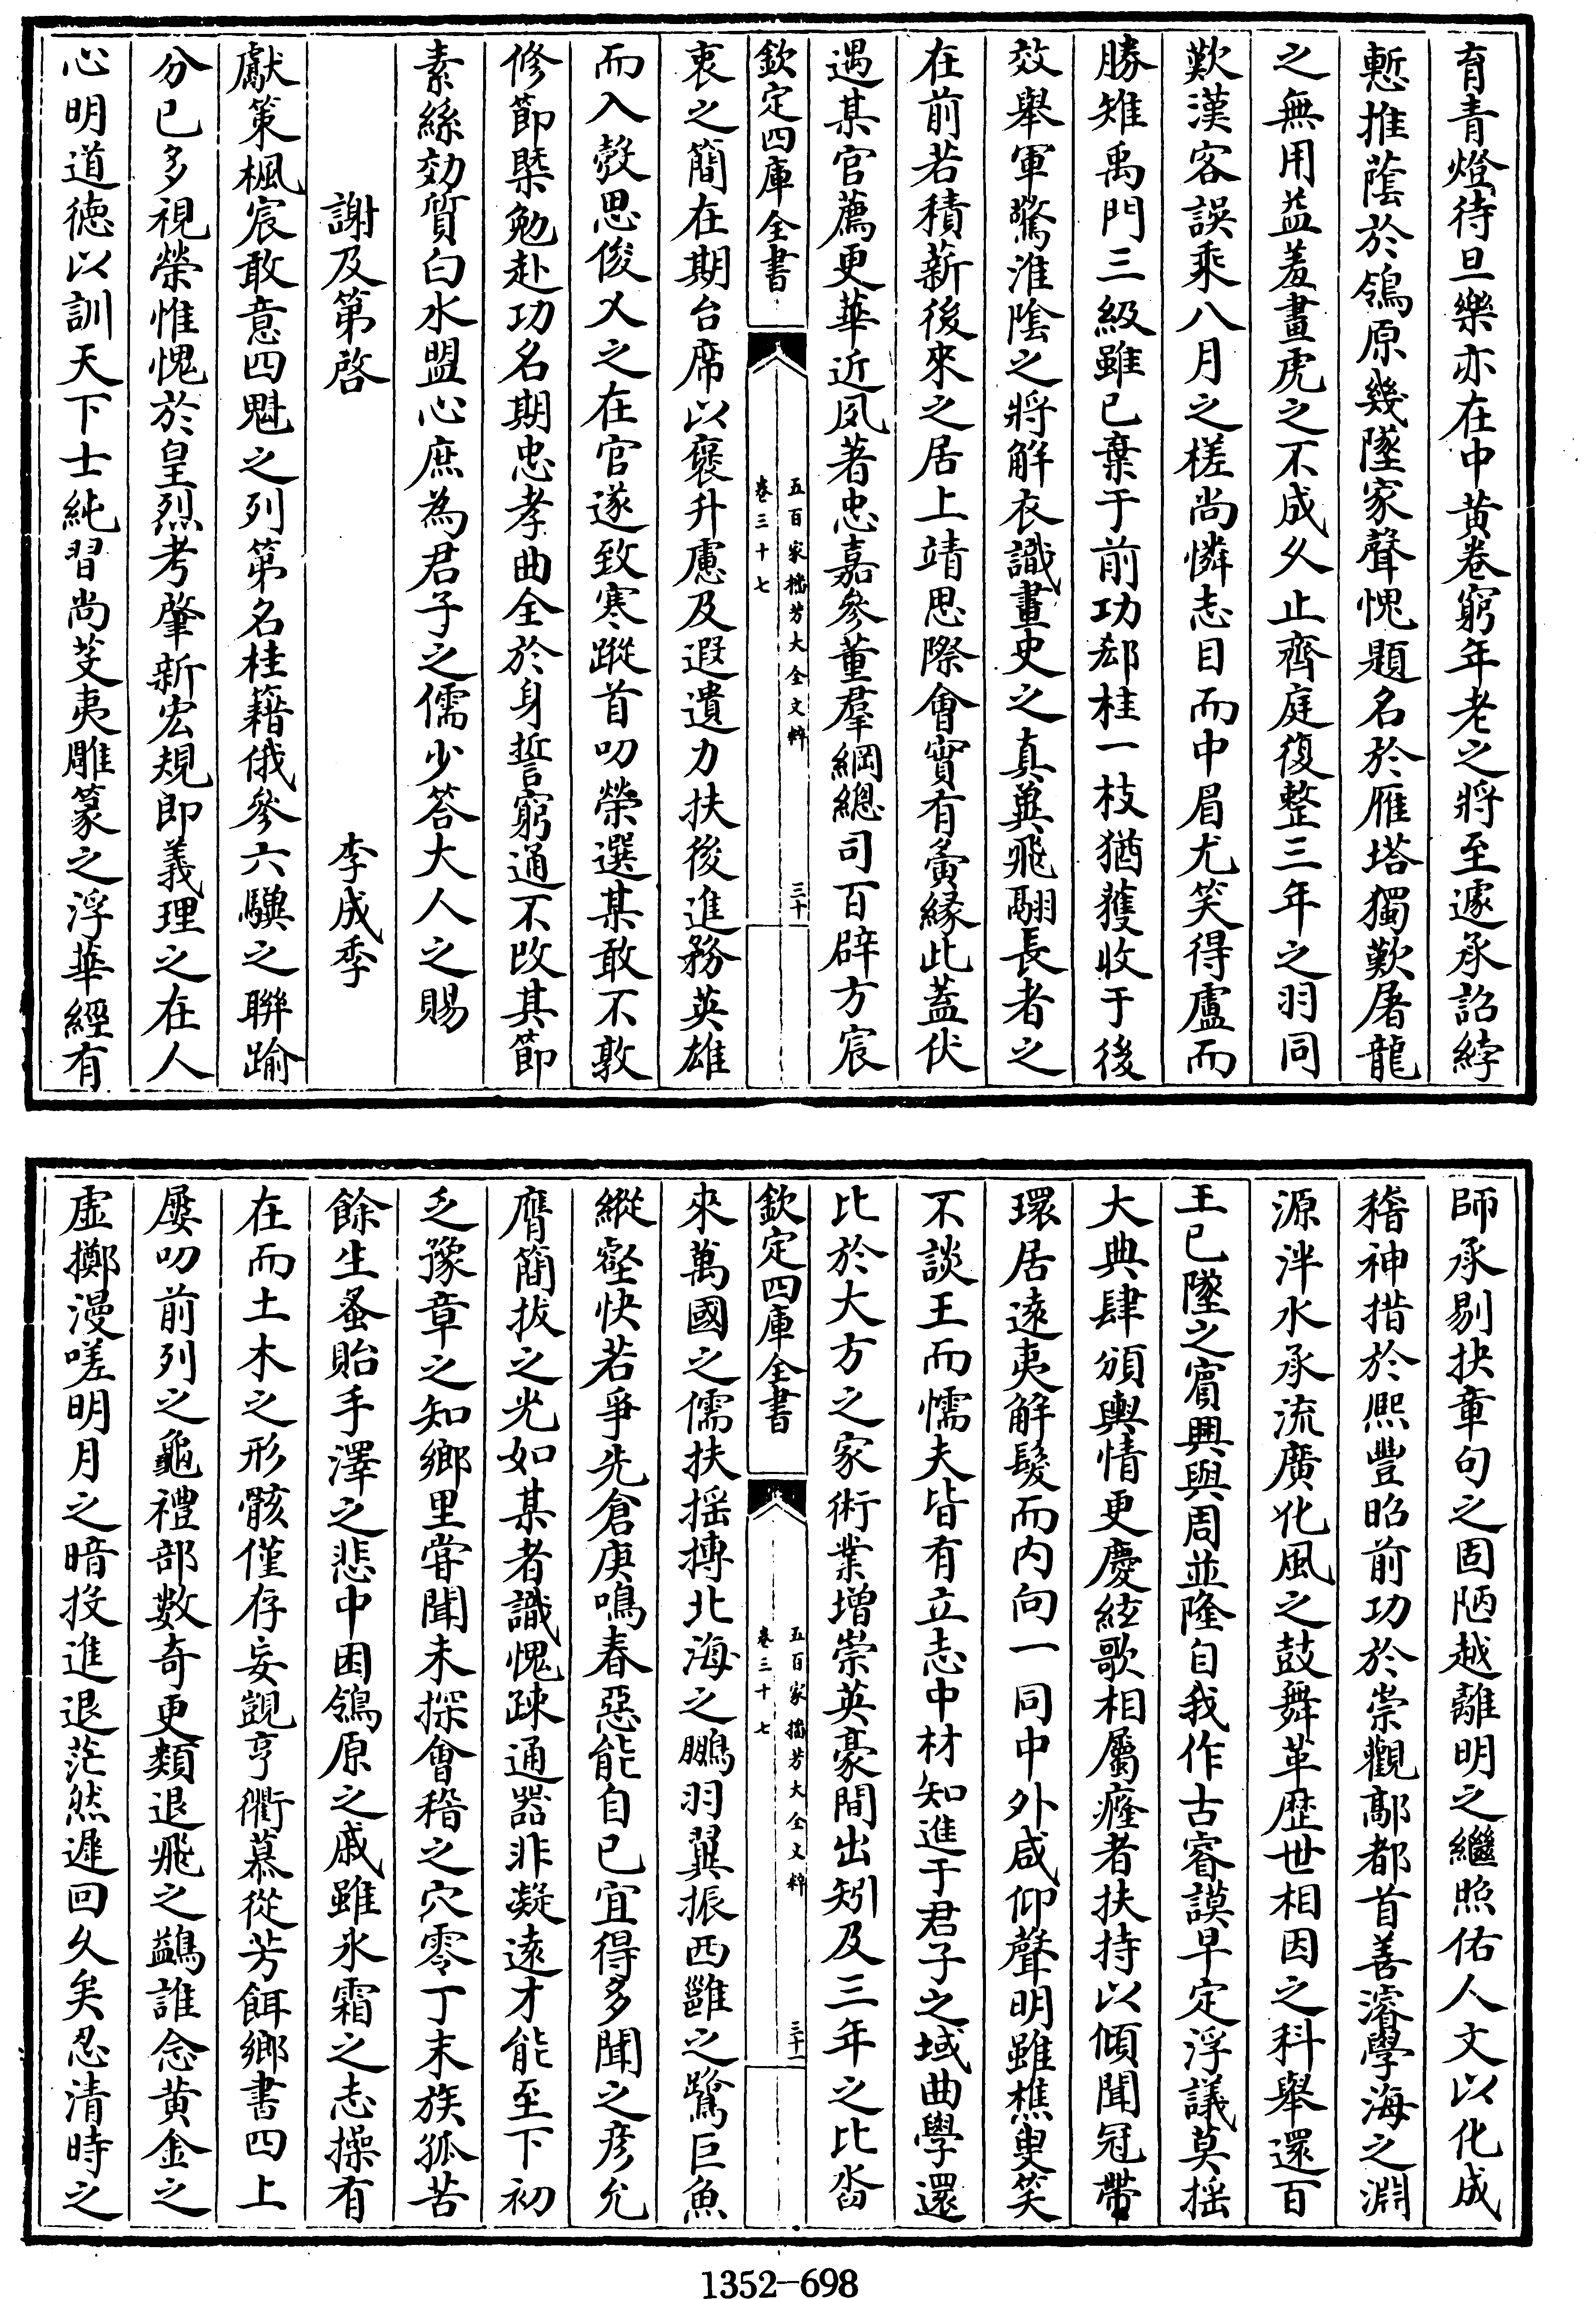 育青燈待旦樂亦在中黄卷窮年老之將至遽承詔綍
慙推䕃於鴒原幾墜家聲愧題名於雁塔獨歎屠龍
之無用益羞畫虎之不成乆止齊庭復整三年之羽同
歎漢客誤乘八月之槎尚憐志目而中眉尤笑得盧而
勝雉禹門三級雖已棄于前功郄桂一枝猶獲收于後
效舉軍驚淮隂之將解衣識畫史之真冀飛翮長者之
在前若積薪後來之居上靖思際會實有夤縁此葢伏
遇某官薦更華近夙著忠嘉參董羣綱總司百辟方宸
欽定四庫全書
五百家播芳大全文粹
卷三十七
三十
衷之簡在期台席以褒升慮及遐遺力扶後進務英雄
而入彀思俊乂之在官遂致寒蹤首叨榮選某敢不敦
修節槩勉赴功名期忠孝曲全於身誓窮通不改其節
素絲効質白水盟心庶為君子之儒少答大人之賜
謝及第啓
李成季
獻策楓宸敢意四魁之列第名桂籍俄參六驥之聯踰
分已多視榮惟愧於皇烈考肇新宏規即義理之在人
心明道徳以訓天下士純習尚芟夷雕篆之浮華經有
師承剔抉章句之固陋越離明之繼照佑人文以化成
稽神措於熙豐昭前功於崇觀鄗都首善濬學海之淵
源泮水承流廣化風之鼓舞革歴世相因之科舉還百
王已墜之賓興與周並隆自我作古睿謨早定浮議莫揺
大典肆頒輿情更慶絃歌相屬癃者扶持以傾聞冠帶
環居逺夷解髮而内向一同中外咸仰聲明雖樵叟笑
不談王而懦夫皆有立志中材知進于君子之域曲學還
比於大方之家術業增崇英豪間出矧及三年之比沓
欽定四庫全書
五百家播芳大全文粹
卷三十七
三十一
來萬國之儒扶揺摶北海之鵬羽翼振西雝之鷺巨魚
縱壑快若爭先倉庚鳴春惡能自已宜得多聞之彦允
膺簡拔之光如某者識愧疎通器非凝逺才能至下初
乏豫章之知鄉里甞聞未探會稽之穴零丁末族孤苦
餘生蚤貽手澤之悲中困鴒原之戚雖氷霜之志操有
在而土木之形骸僅存妄覬亨衢慕從芳餌鄉書四上
屢叨前列之龜禮部數奇更類退飛之鷁誰念黄金之
虚擲漫嗟明月之暗投進退茫然遲回乆矣忍清時之
1352—698